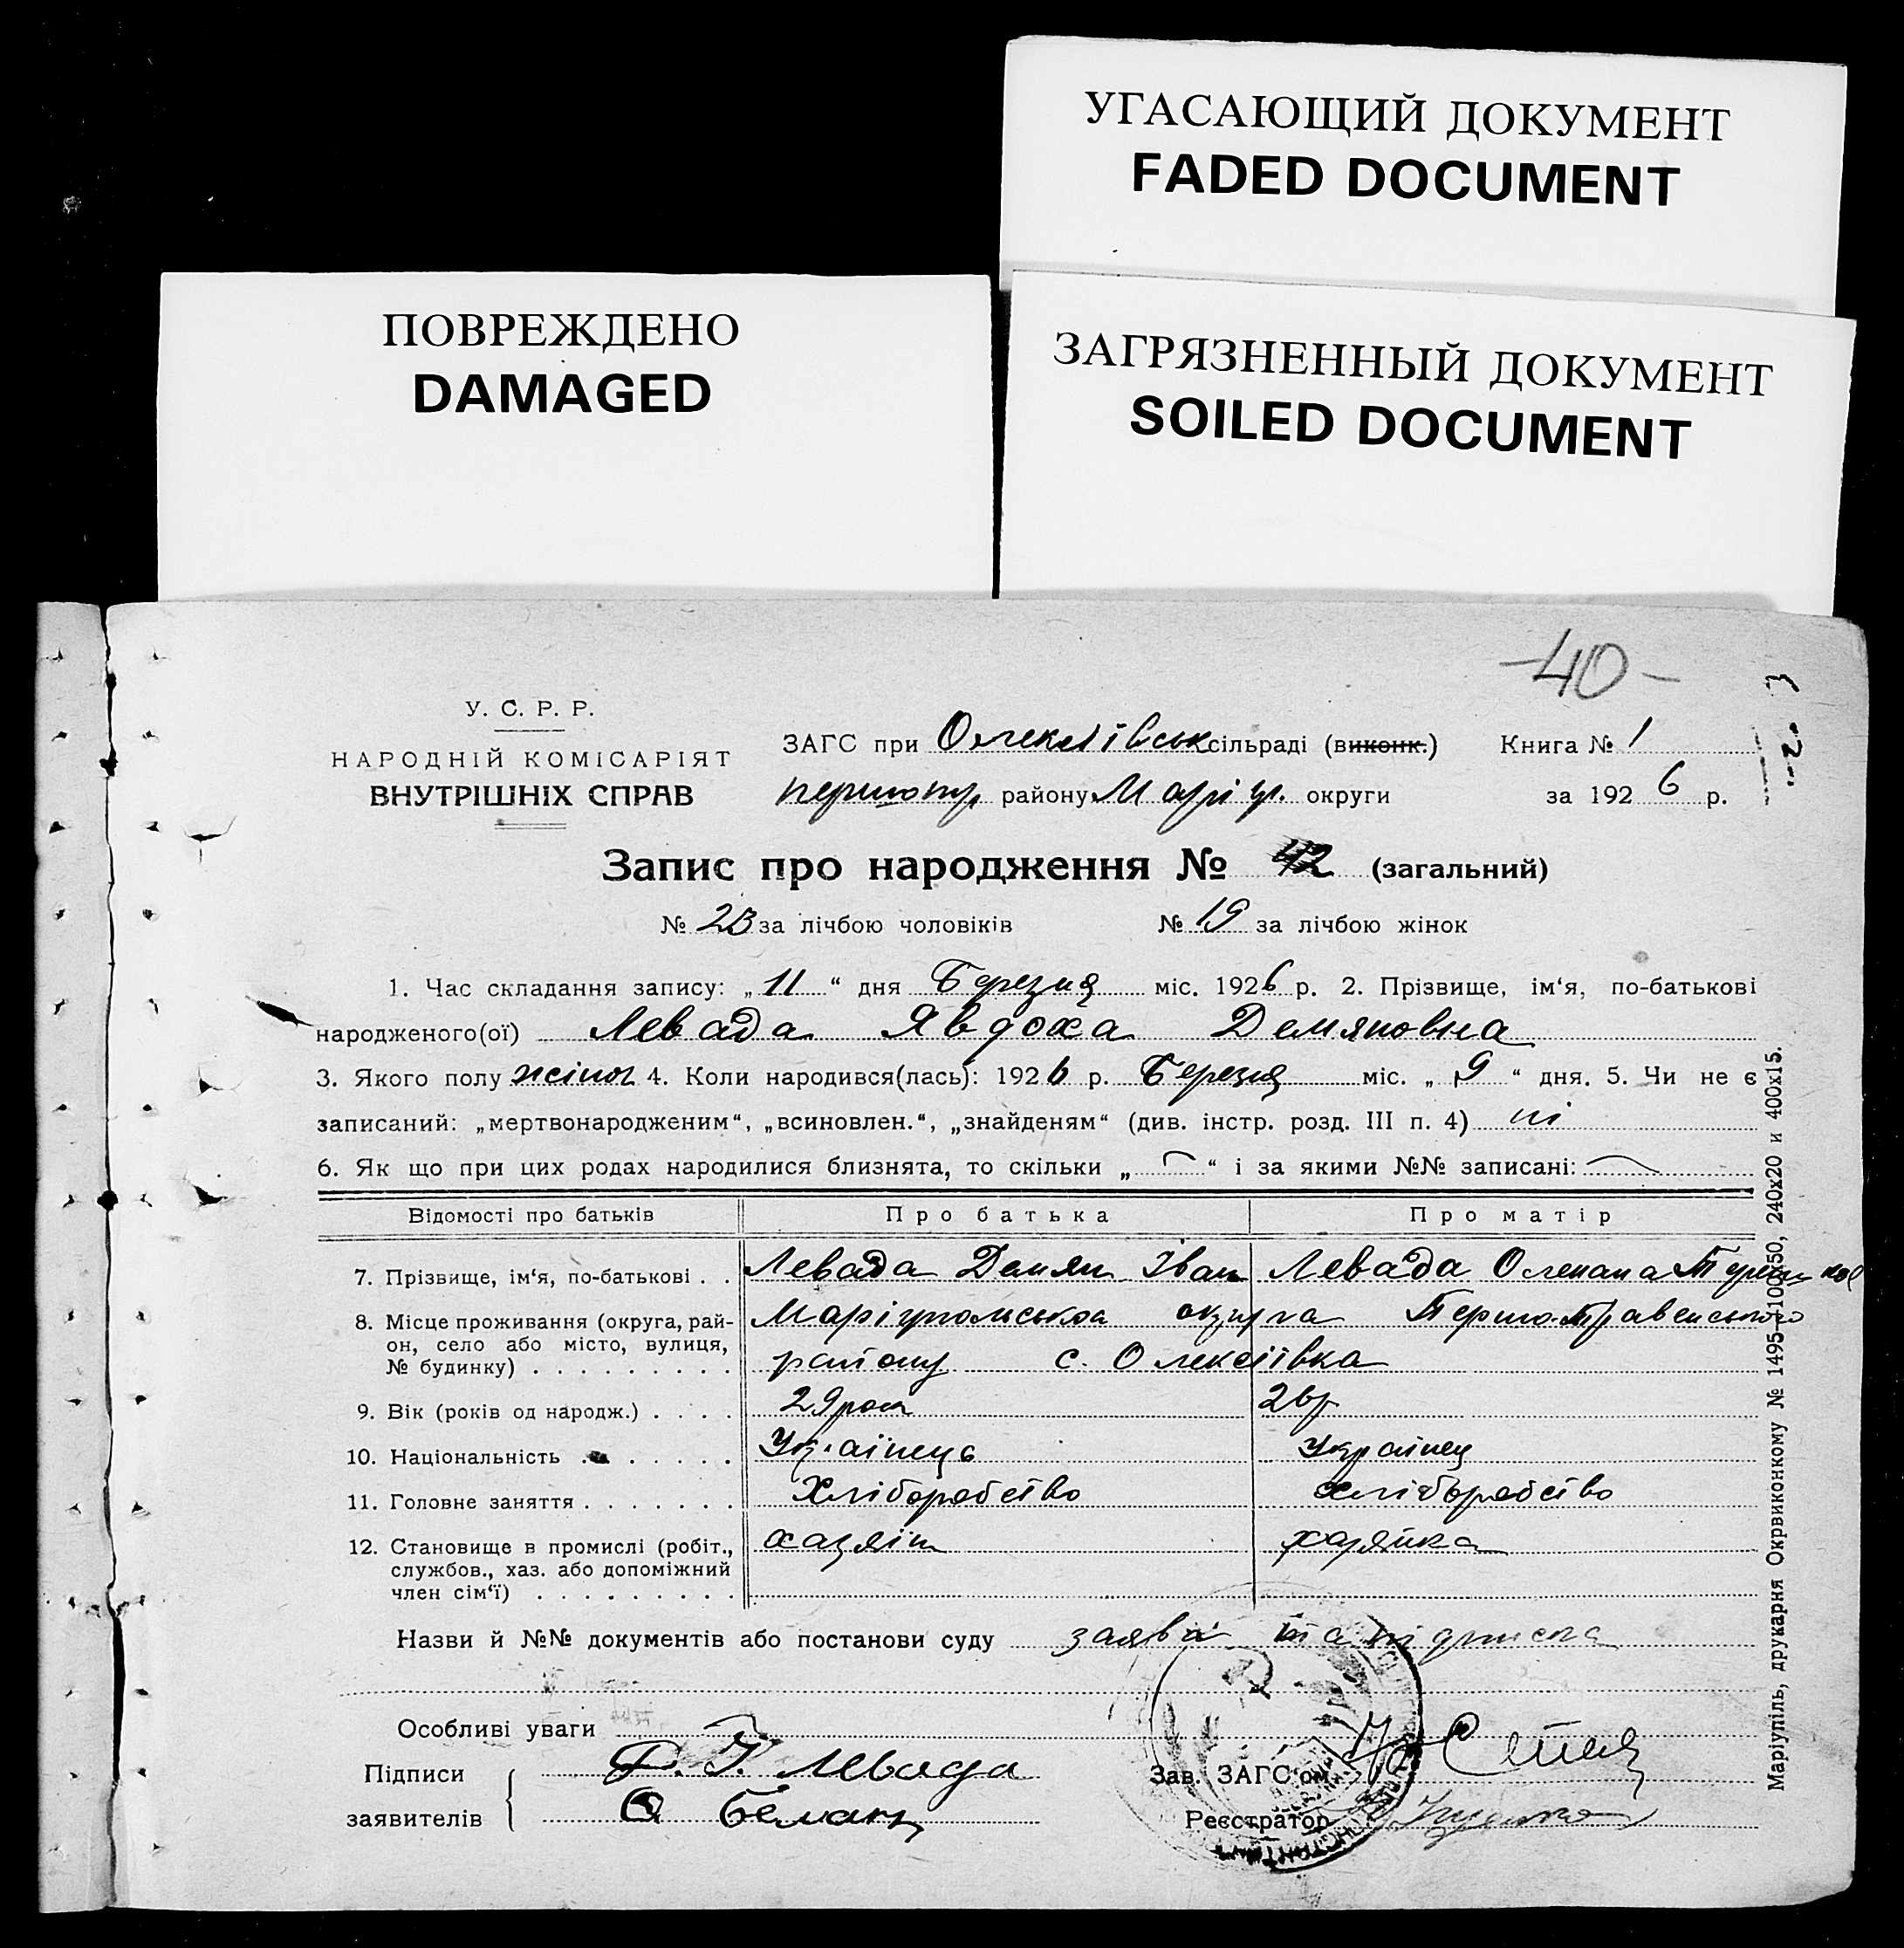 УГАСАЮЩИЙ ДОКУМЕНТ
FADED DOCUMENT
ПОВРЕЖДЕНО
DAMAGED
ЗАГРЯЗНЕННЫЙ ДОКУМЕНТ
SOILED DOCUMENT
-40-
У. С. Р. Р.
НАРОДНІЙ КОМІСАРІЯТ
ВНУТРІШНІХ СПРАВ
ЗАГС при Олексіївськ сільраді (виконк.) Книга № 1
першотр району Маріуп. округи за 1926 р.
Запис про народження № 42 (загальний)
№ 23 за лічбою чоловіків № 19 за лічбою жінок
1. Час складання запису: „11“ дня Березня міс. 1926 р. 2. Прізвище, ім‘я, по-батькові
народженого(ої) Левада Явдоха Демяновна
3. Якого полу жіноч 4. Коли народився(лась): 1926 р. Березня міс. „9“ дня. 5. Чи не є
записаний: „мертвонародженим“, „всиновлен.“, „знайденям“ (див. інстр. розд. III п. 4) ні
6. Як що при цих родах народилися близнята, то скільки „ “ і за якими №№ записані:
Відомості про батьків Про батька Про матір
7. Прізвище, ім‘я, по-батькові . . Левада Демян Іван Левада Олена
8. Місце проживання (округа, рай-
он, село або місто, вулиця,
№ будинку) . . . . . . . . .
Маріупольська округа Першо-Травенського
району с. Олексіївка
9. Вік (років од народж.) . . . . 29 рок 26 р
10. Національність . . . . . . Українець Українец
11. Головне заняття . . . . . . . Хліборобство хліборобство
12. Становище в промислі (робіт.,
службов., хаз. або допоміжний
член сім‘ї) . . . . . . . . .
хазяїн хазяйка
Назви й №№ документів або постанови суду заява та підписка
Особливі уваги
Підписи Д. І. Левада
заявителів
Зав. ЗАГС‘ом
Реєстратор
Маріупіль, друкарня Окрвиконкому № 1495—100х50, 240х20 и 400х15.